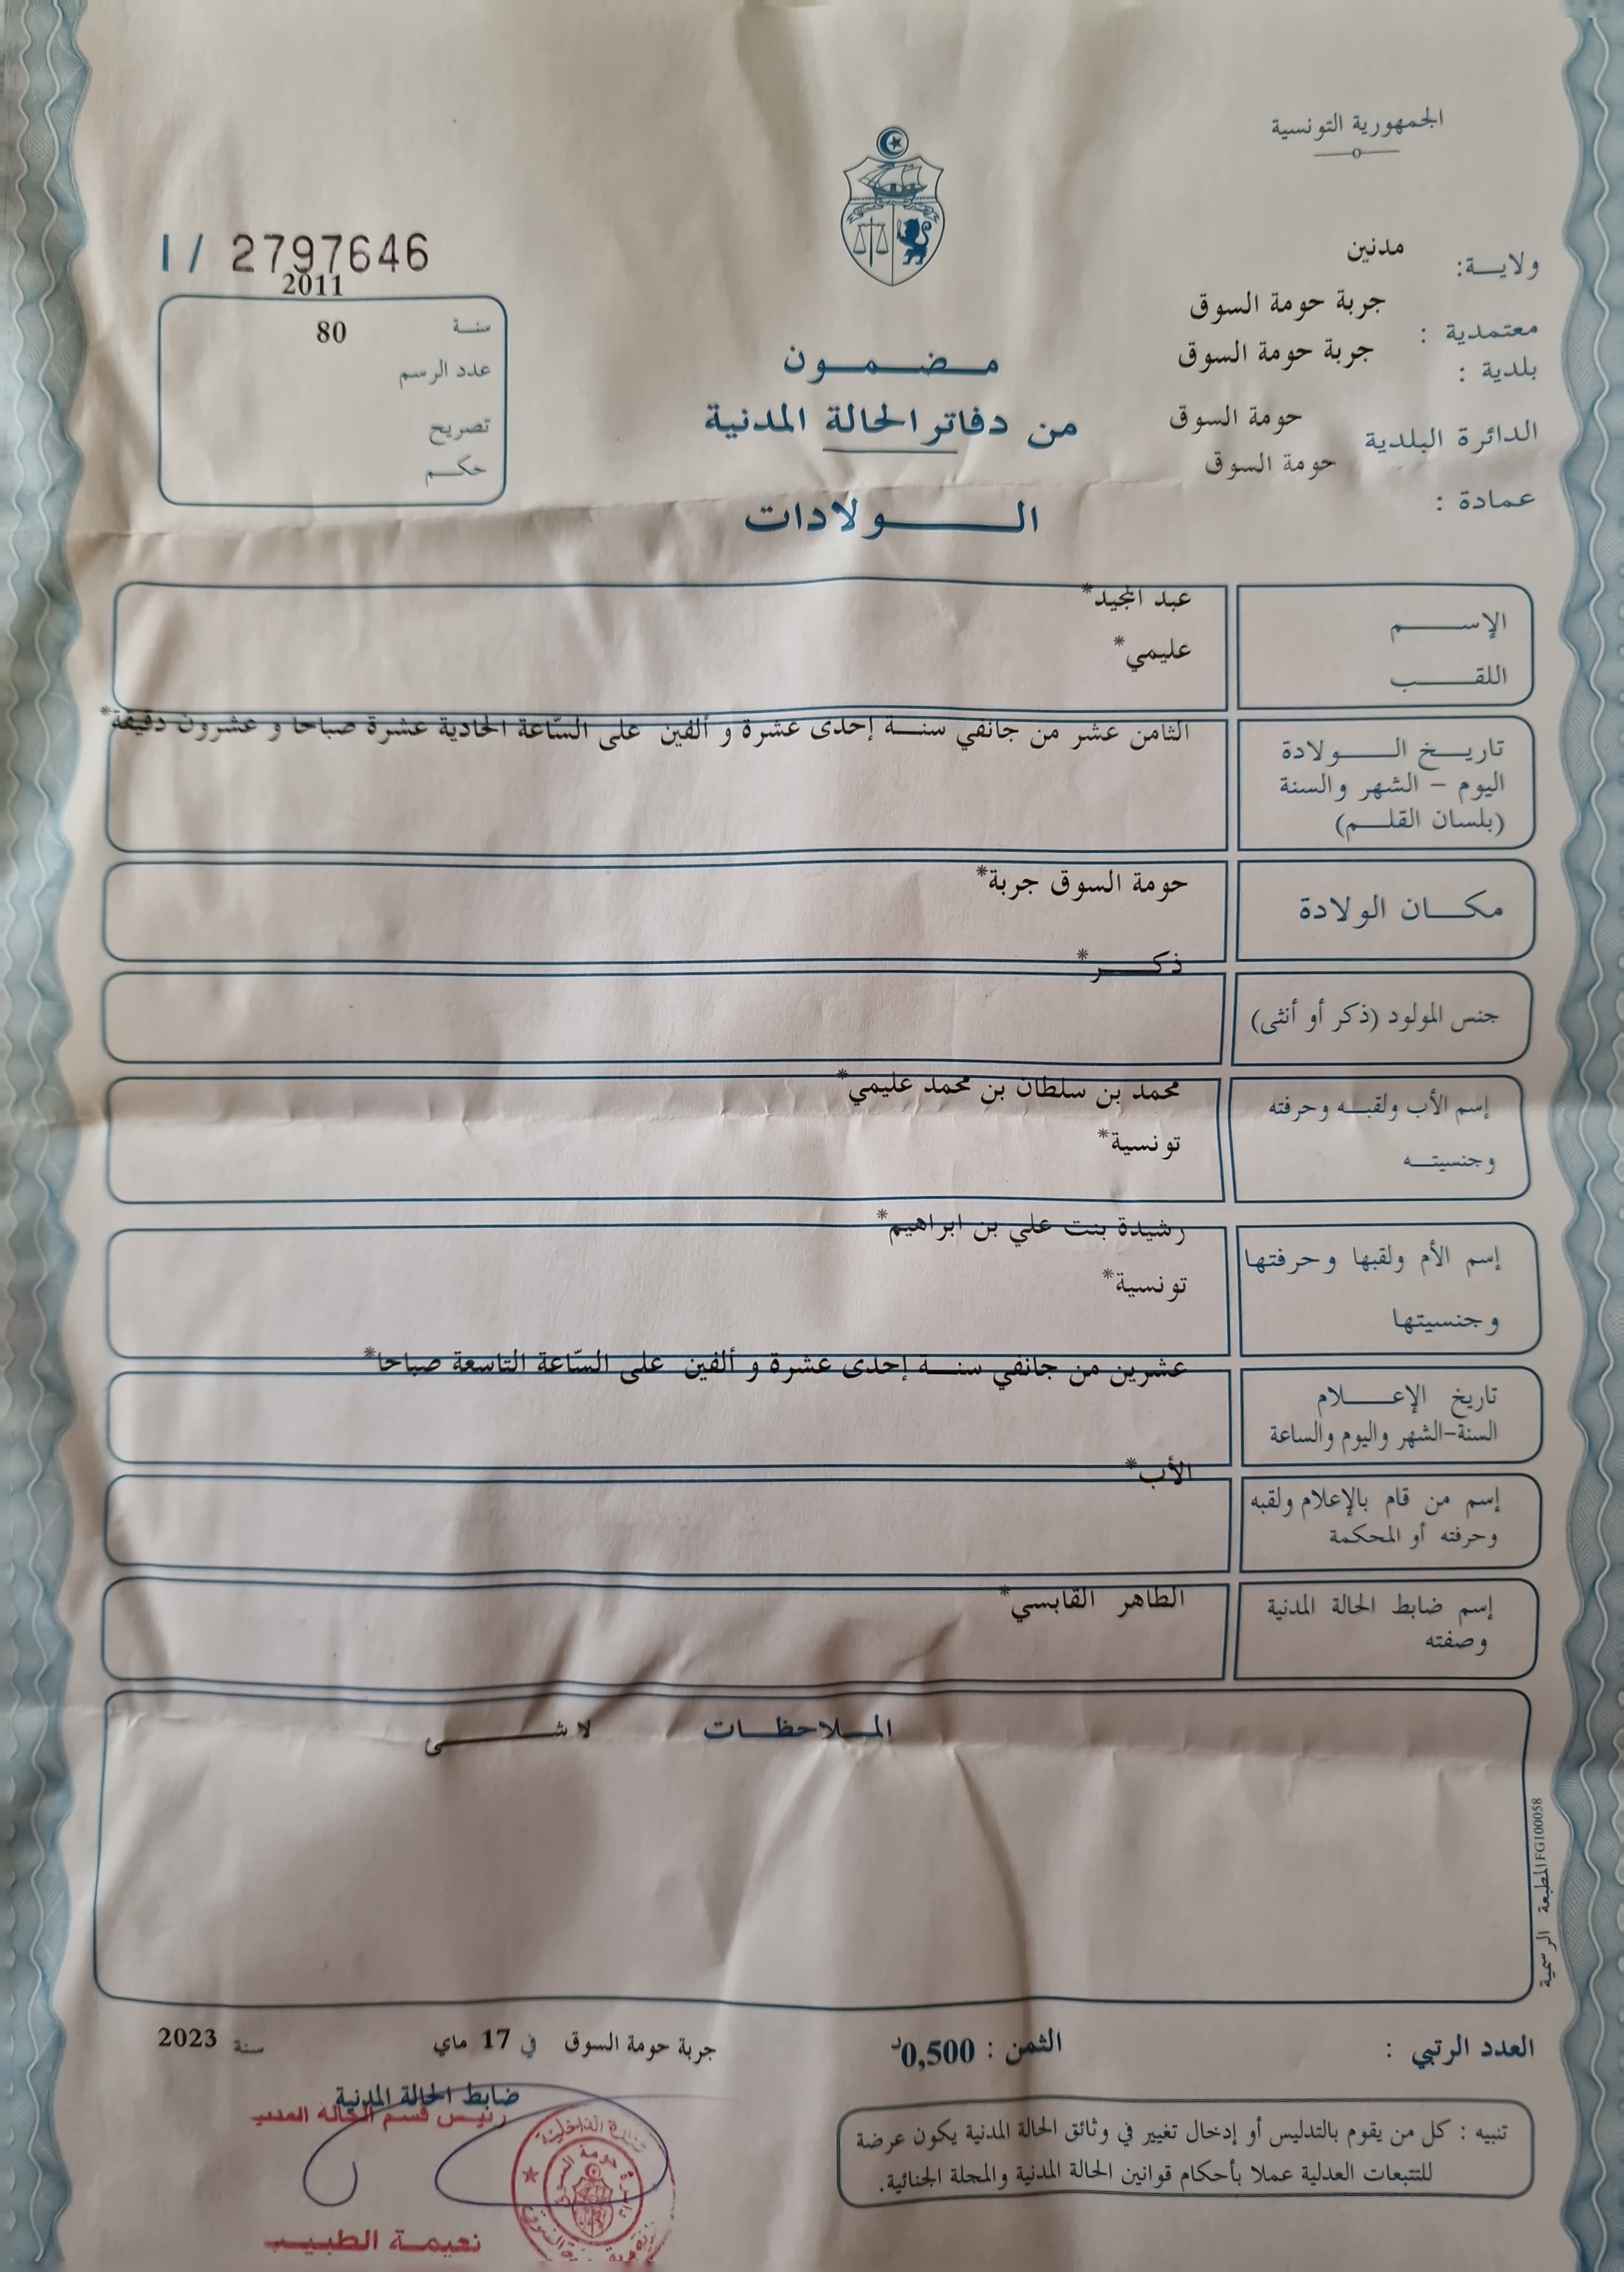 الجمهورية التونسية
ولايـــة: مدنين
معتمدية : جربة حومة السوق
بلدية : جربة حومة السوق
الدائرة البلدية حومة السوق
عمادة : حومة السوق
I / 2797646
2011
سنـة 80
عدد الرسم
تصريح
حكـم
مـضـمـون
من دفاتر الحالة المدنية
الـــولادات
الإســـم عبد المجيد*
اللقـــب عليمي*
تاريـخ الــولادة
اليوم - الشهر والسنة
(بلسان القلـم)
الثامن عشر من جانفي سنـة إحدى عشرة و ألفين على السّاعة الحادية عشرة صباحا و عشرون دقيقة*
مكــان الولادة حومة السوق جربة*
جنس المولود (ذكر أو أنثى) ذكــر*
إسم الأب ولقبـه وحرفته محمد بن سلطان بن محمد عليمي*
وجنسيتـه تونسية*
إسم الأم ولقبها وحرفتها رشيدة بنت علي بن ابراهيم*
وجنسيتها تونسية*
تاريخ الإعــلام
السنة-الشهر واليوم والساعة
عشرين من جانفي سنـة إحدى عشرة و ألفين على السّاعة التاسعة صباحا*
إسم من قام بالإعلام ولقبه
وحرفته أو المحكمة
الأب*
إسم ضابط الحالة المدنية
وصفته
الطاهر القابسي*
المـلاحظـات لاشـــئ
المطبعة الرسمية FG100058
العدد الرتبي :
الثمن : 0,500د
جربة حومة السوق في 17 ماي سنة 2023
ضابط الحالة المدنية
رئيس قسم الحالة المدنية
نعيمة الطبيب
تنبيه : كل من يقوم بالتدليس أو إدخال تغيير في وثائق الحالة المدنية يكون عرضة
للتتبعات العدلية عملا بأحكام قوانين الحالة المدنية والمجلة الجنائية.